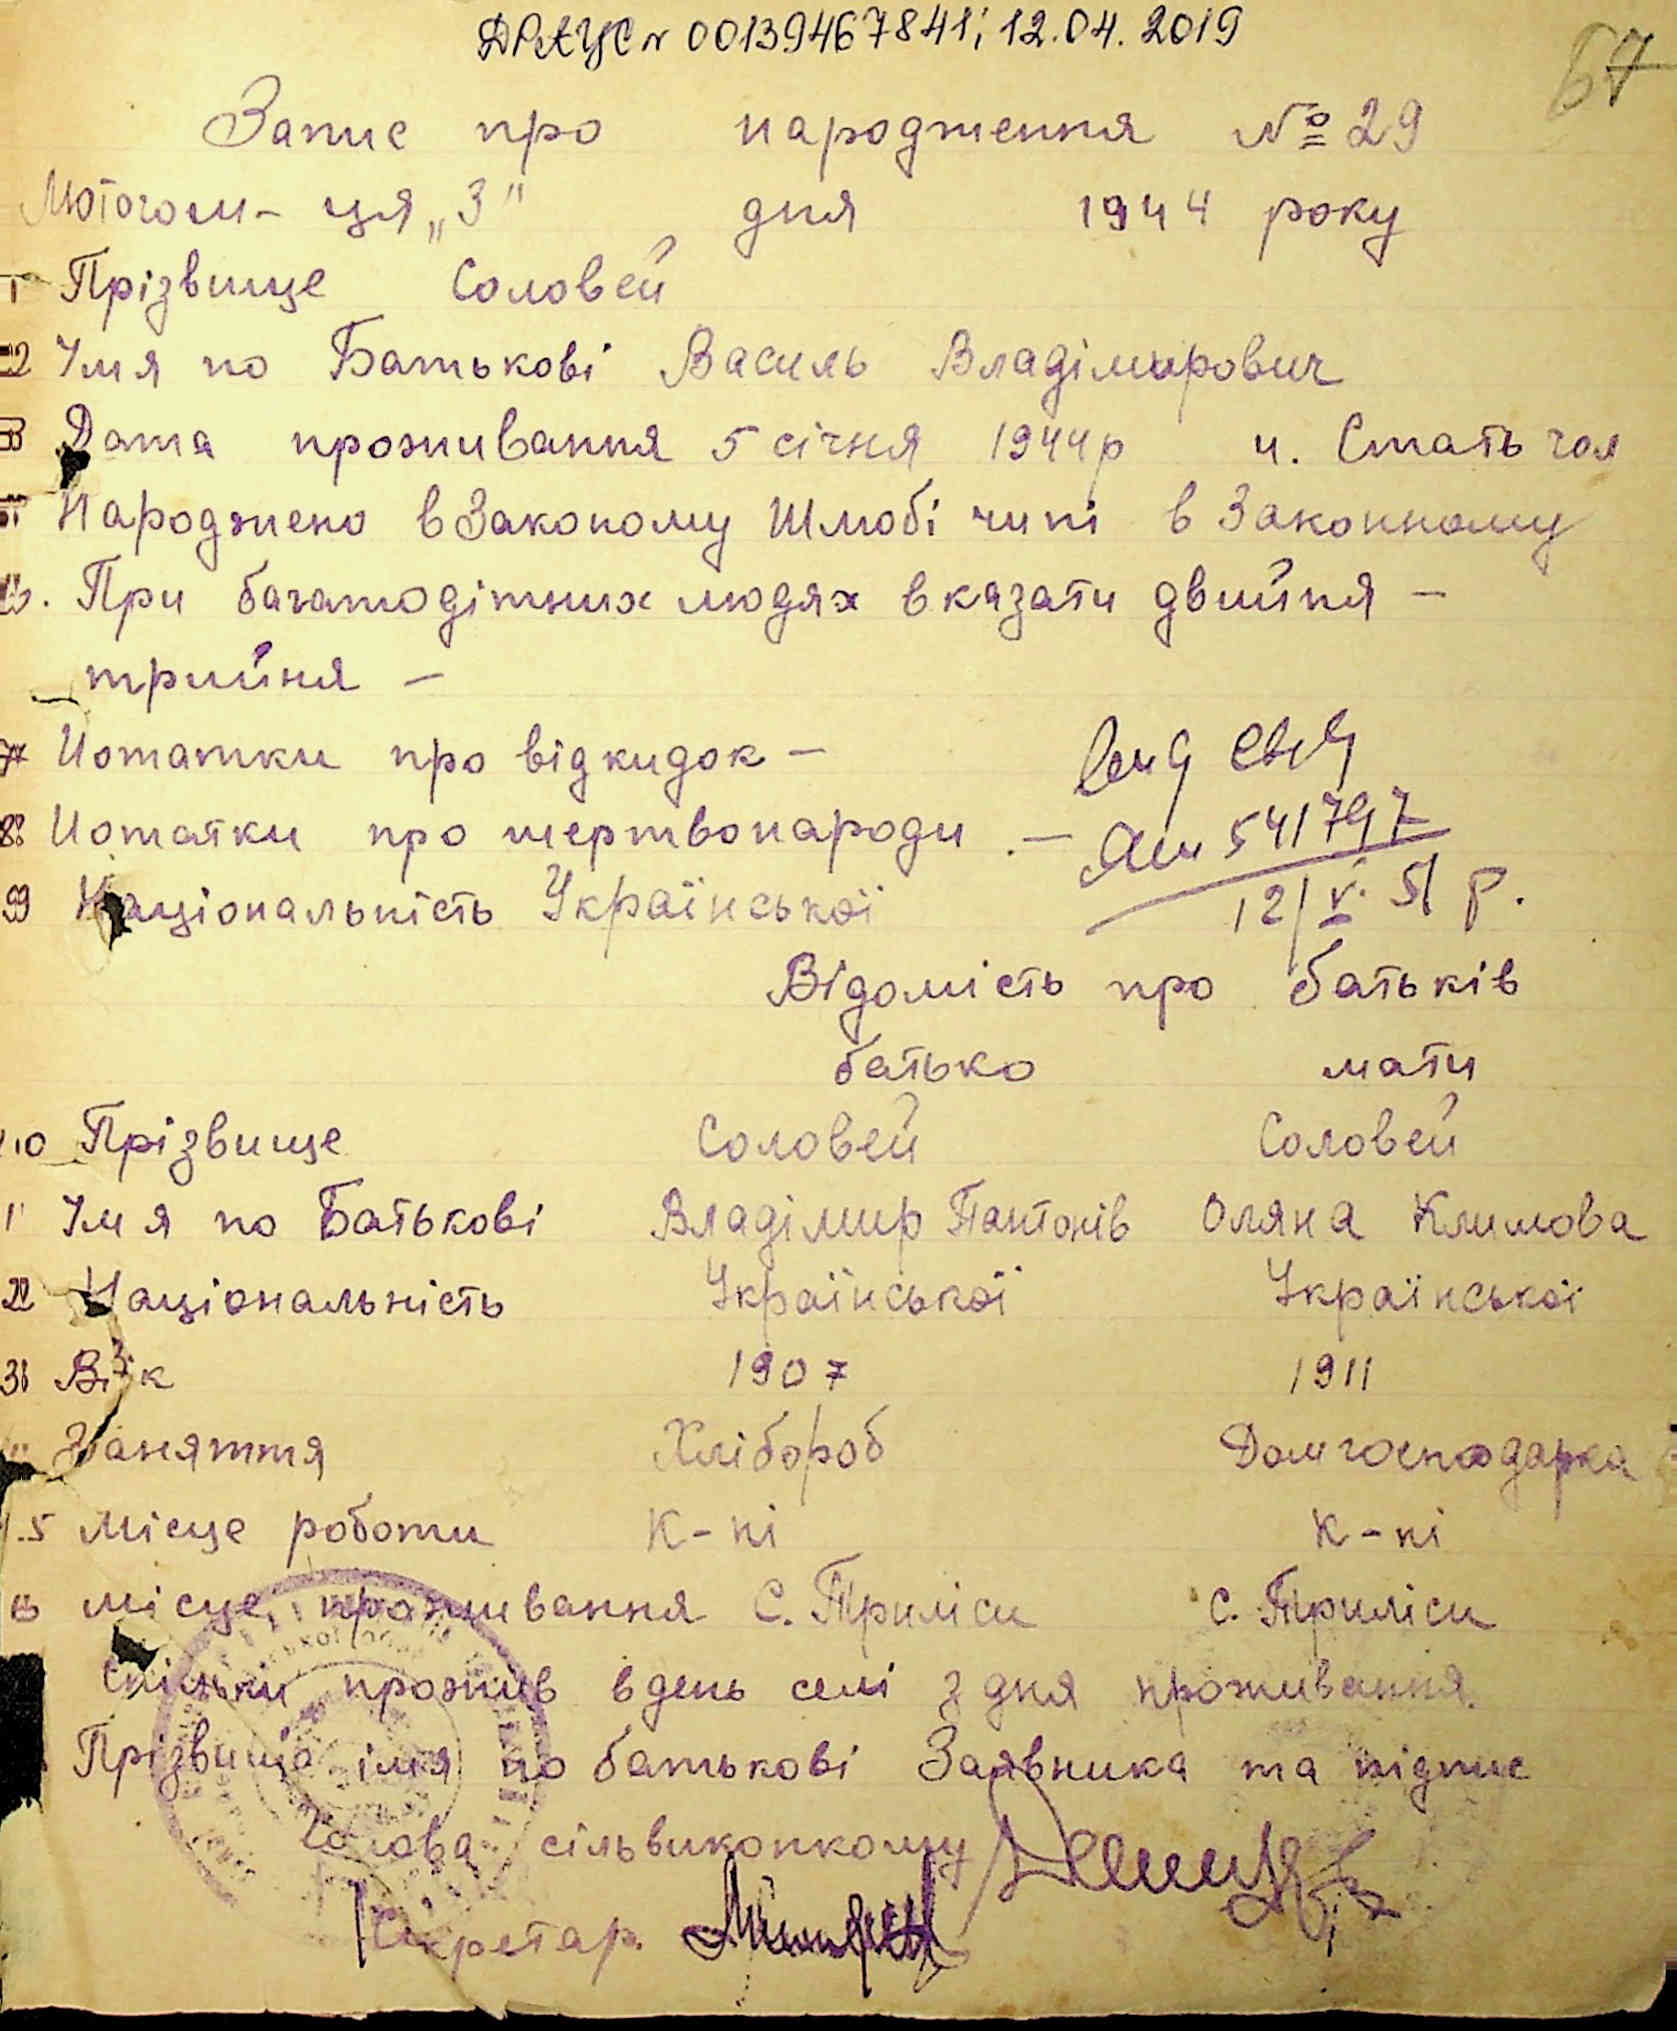 ДРАЦС № 00139467841; 12.04.2019
67
Запис про народження № 29
Лютого м-ця „3" дня 1944 року
1 Прізвище Соловей
2 Імя по Батькові Василь Владімирович
3 Дата проживання 5 січня 1944р 4. Стать чол
5 Народжено в Законому Шлюбі чи ні в Законному
6. При багатодітних людях вказати двийня –
трийня –
7 Нотатки про відкидок –
8 Нотатки про мертвонароди. –
9 Національність Української
541797
12/V. 51 р.
Відомість про батьків
батько мати
10 Прізвище Соловей Соловей
11 Імя по Батькові Владімир Пантонів Оляна Климова
12 Національність Української Української
13 Вік 1907 1911
Заняття Хлібороб Домгосподарка
15 Місце роботи К-кі К-кі
16 Місце проживання С. Триліси С. Триліси
Скільки прожив в день селі з дня проживання.
Прізвище імя по батькові Заявника та підпис
Голова сільвиконкому
Секретар